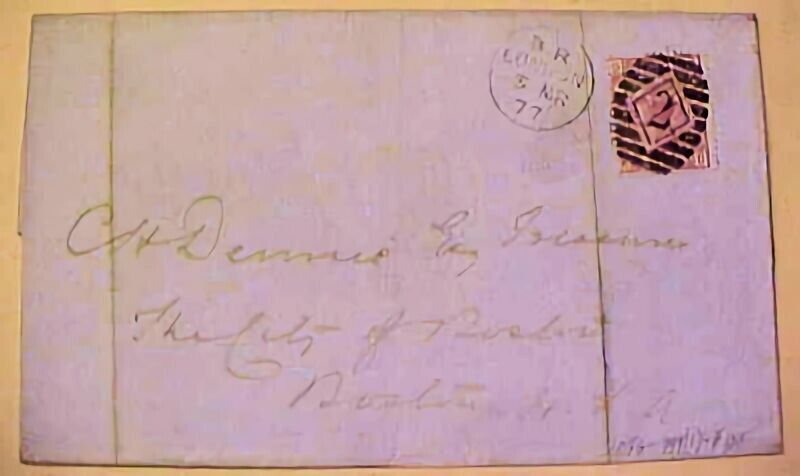 B R
LONDON
3 MR
77
2
C H Dennie Esq Treasurer
The City of Boston
Boston U S A